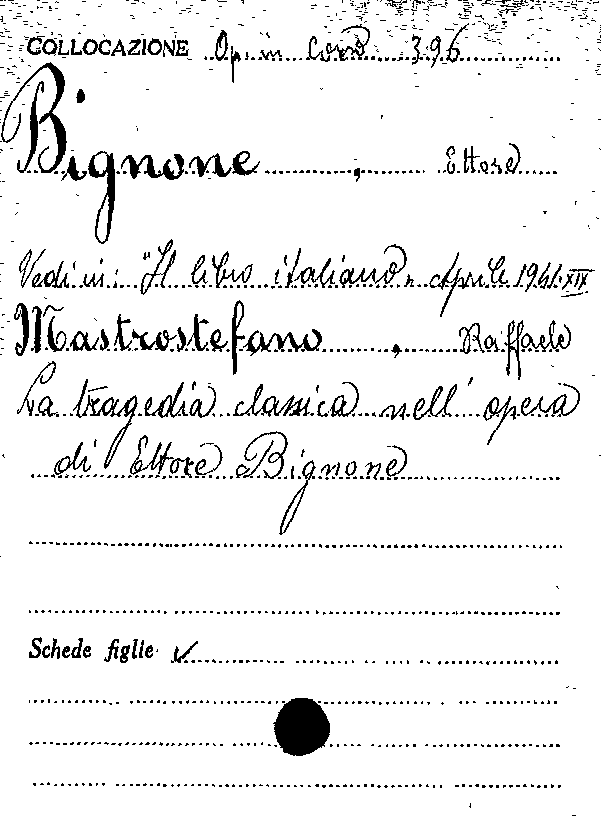 COLLOCAZIONE Op. in Corso 396
Bignone, Ettore
Vedi in: "Il libro italiano" Aprile 1941-XIX
Mastrostefano, Raffaele
La tragedia classica nell'opera
di Ettore Bignone
Schede figlie ✓